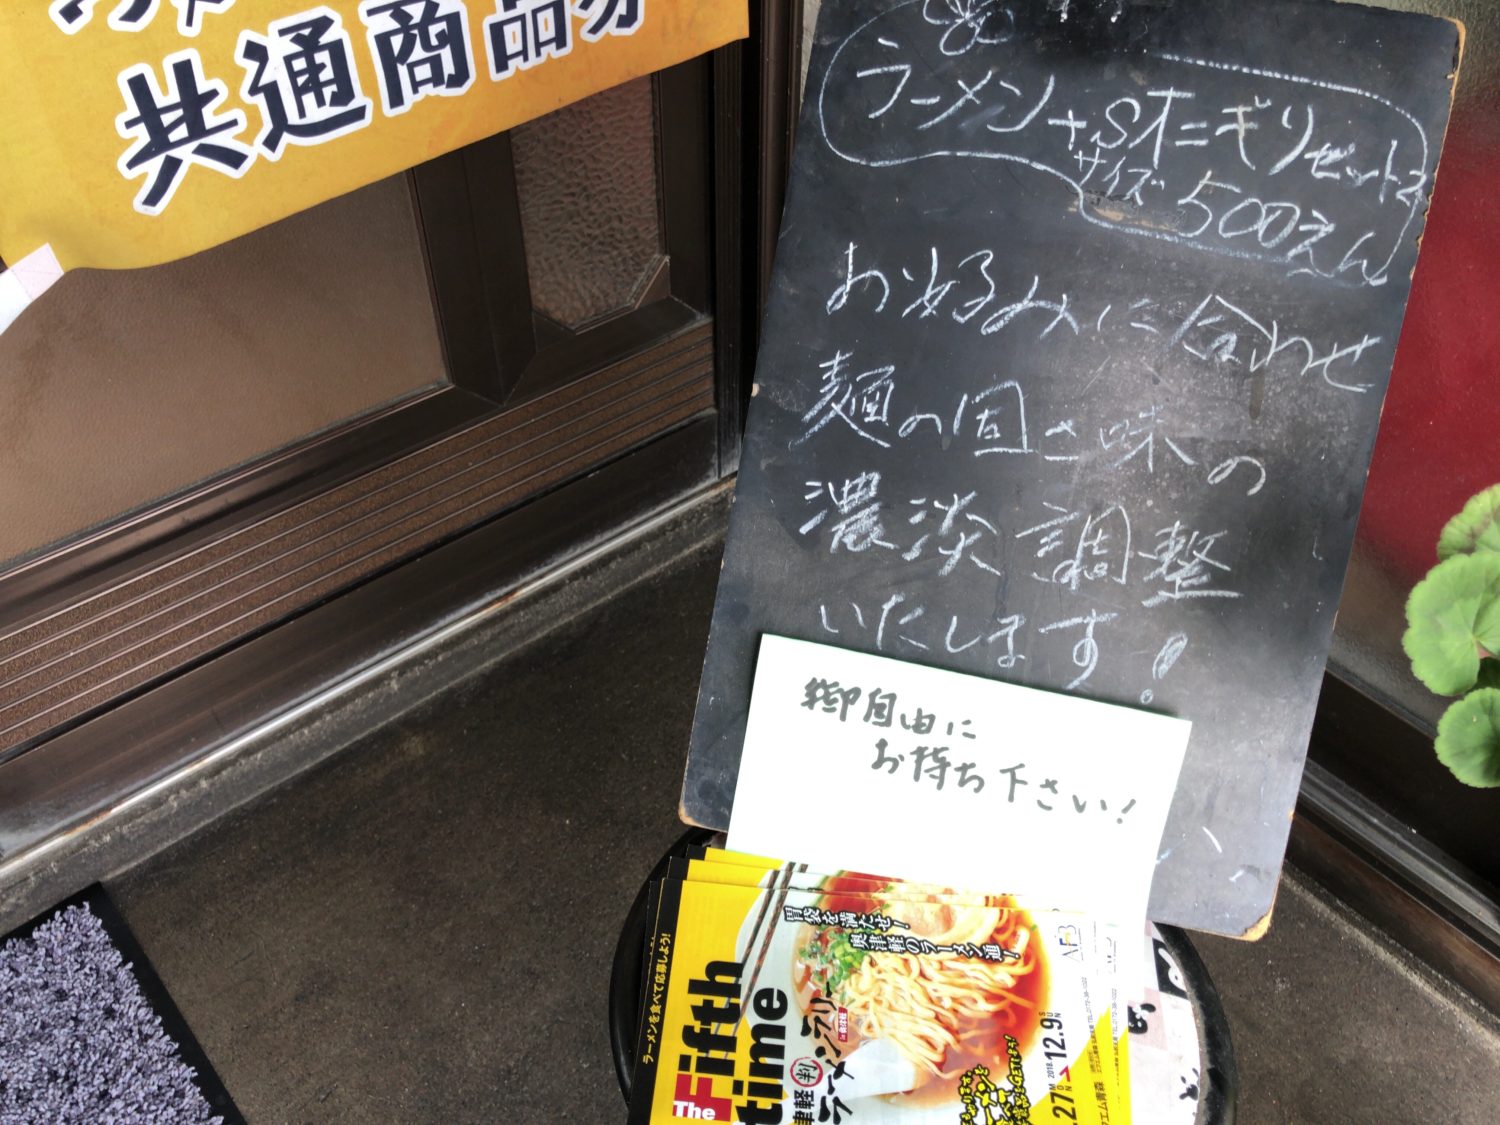 共通商品券
ラーメン+Sオニギリセット
サイズ 500えん
お好みに合わせ
麺の固さ味の
濃淡調整
いたします!
御自由に
お持ち下さい!
胃袋を満たせ!
奥津軽のラーメン通!
ラーメンを食べて応募しよう!
The Fifth
time
津軽判
ラーメンラリー
in 奥津軽
AFB
2018
12.9 SUN
.27 MON
エフエム青森